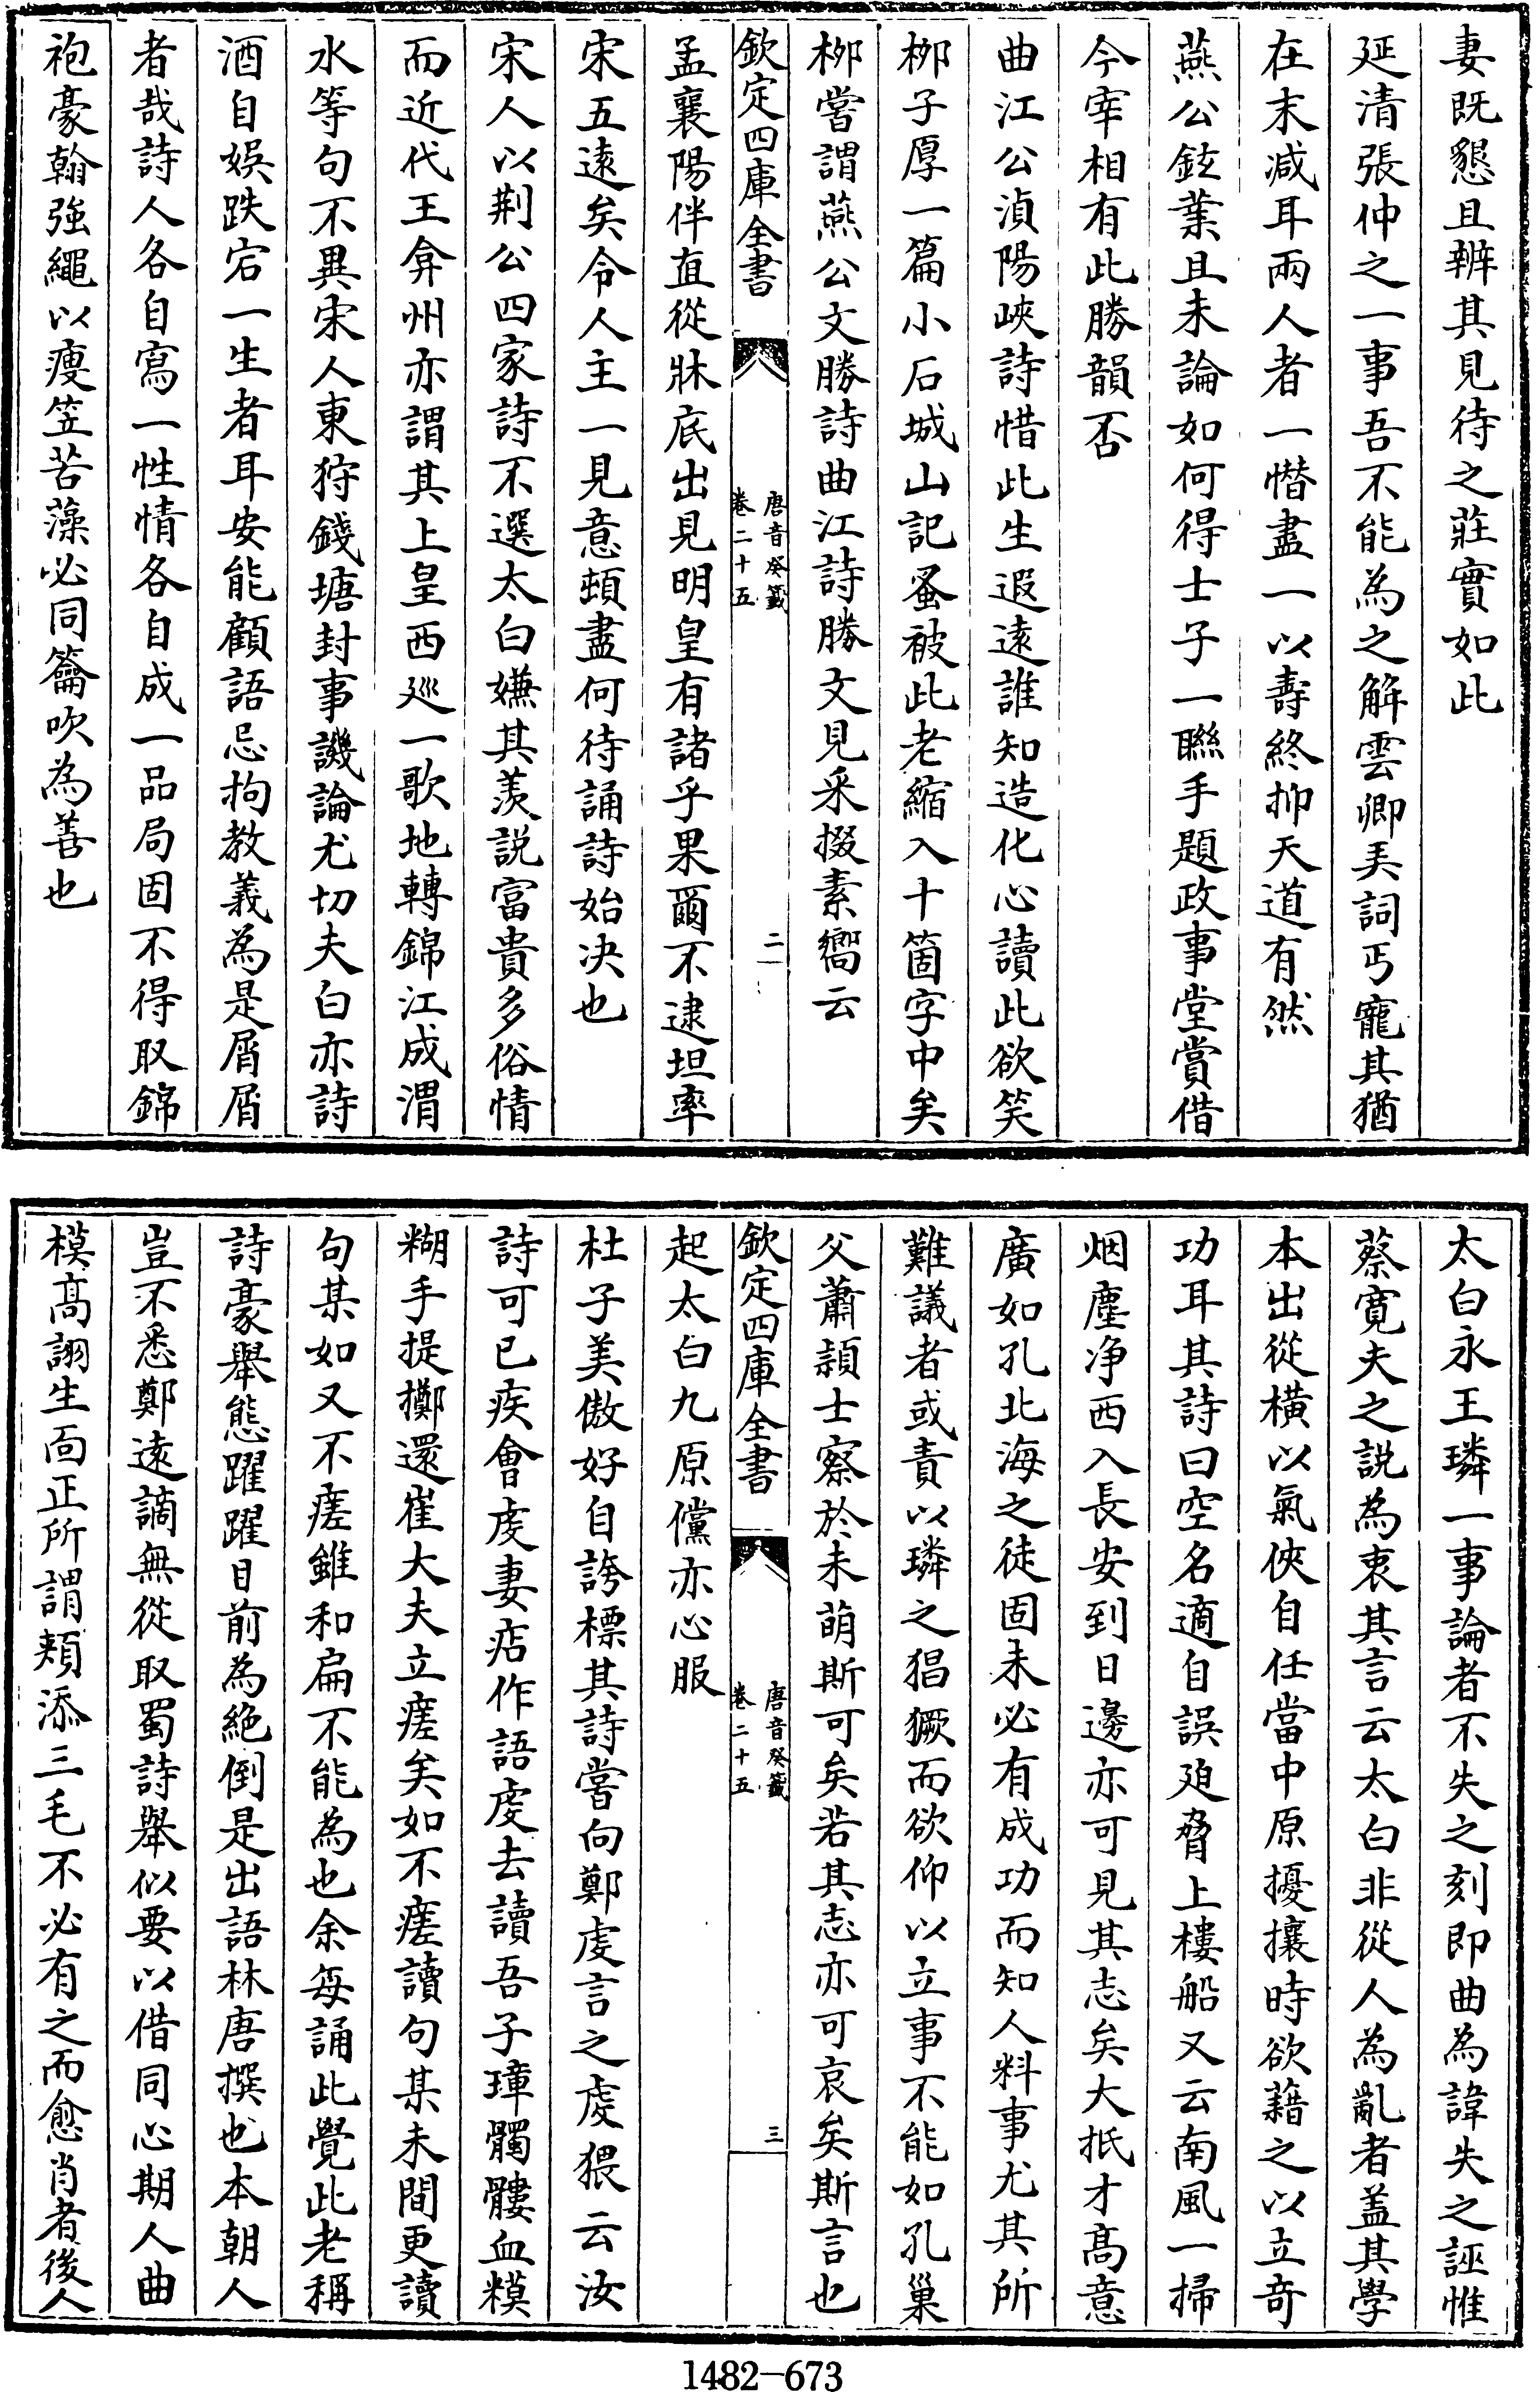 妻既懇且辨其見待之莊實如此
延清張仲之一事吾不能為之解雲卿美詞丐寵其猶
在末減耳兩人者一憯盡一以壽終抑天道有然
燕公鉉業且未論如何得士子一聯手題政事堂賞借
今宰相有此勝韻否
曲江公湞陽峽詩惜此生遐逺誰知造化心讀此欲笑
栁子厚一篇小石城山記蚤被此老縮入十箇字中矣
栁嘗謂燕公文勝詩曲江詩勝文見采掇素嚮云
欽定四庫全書
唐音癸籖
卷二十五
二
孟襄陽伴直從牀底出見明皇有諸乎果爾不逮坦率
宋五逺矣令人主一見意頓盡何待誦詩始决也
宋人以荆公四家詩不選太白嫌其羨説富貴多俗情
而近代王弇州亦謂其上皇西廵一歌地轉錦江成渭
水等句不異宋人東狩錢塘封事譏論尤切夫白亦詩
酒自娱跌宕一生者耳安能顧語忌拘教義為是屑屑
者哉詩人各自寫一性情各自成一品局固不得取錦
袍豪翰強繩以瘦笠苦藻必同籥吹為善也
太白永王璘一事論者不失之刻即曲為諱失之誣惟
蔡寛夫之説為衷其言云太白非從人為亂者盖其學
本出從橫以氣俠自任當中原擾攘時欲藉之以立竒
功耳其詩曰空名適自誤廹脅上樓船又云南風一掃
烟塵净西入長安到日邊亦可見其志矣大抵才髙意
廣如孔北海之徒固未必有成功而知人料事尤其所
難議者或責以璘之猖獗而欲仰以立事不能如孔巢
父蕭頴士察於未萌斯可矣若其志亦可哀矣斯言也
欽定四庫全書
唐音癸籖
卷二十五
三
起太白九原儻亦心服
杜子美傲好自誇標其詩嘗向鄭虔言之虔猥云汝
詩可已疾會虔妻痁作語虔去讀吾子璋髑髏血糢
糊手提擲還崔大夫立瘥矣如不瘥讀句某未間更讀
句某如又不瘥雖和扁不能為也余每誦此覺此老稱
詩豪舉態躍躍目前為絶倒是出語林唐撰也本朝人
豈不悉鄭逺謫無從取蜀詩舉似要以借同心期人曲
模髙詡生面正所謂頰添三毛不必有之而愈肖者後人
1482-673